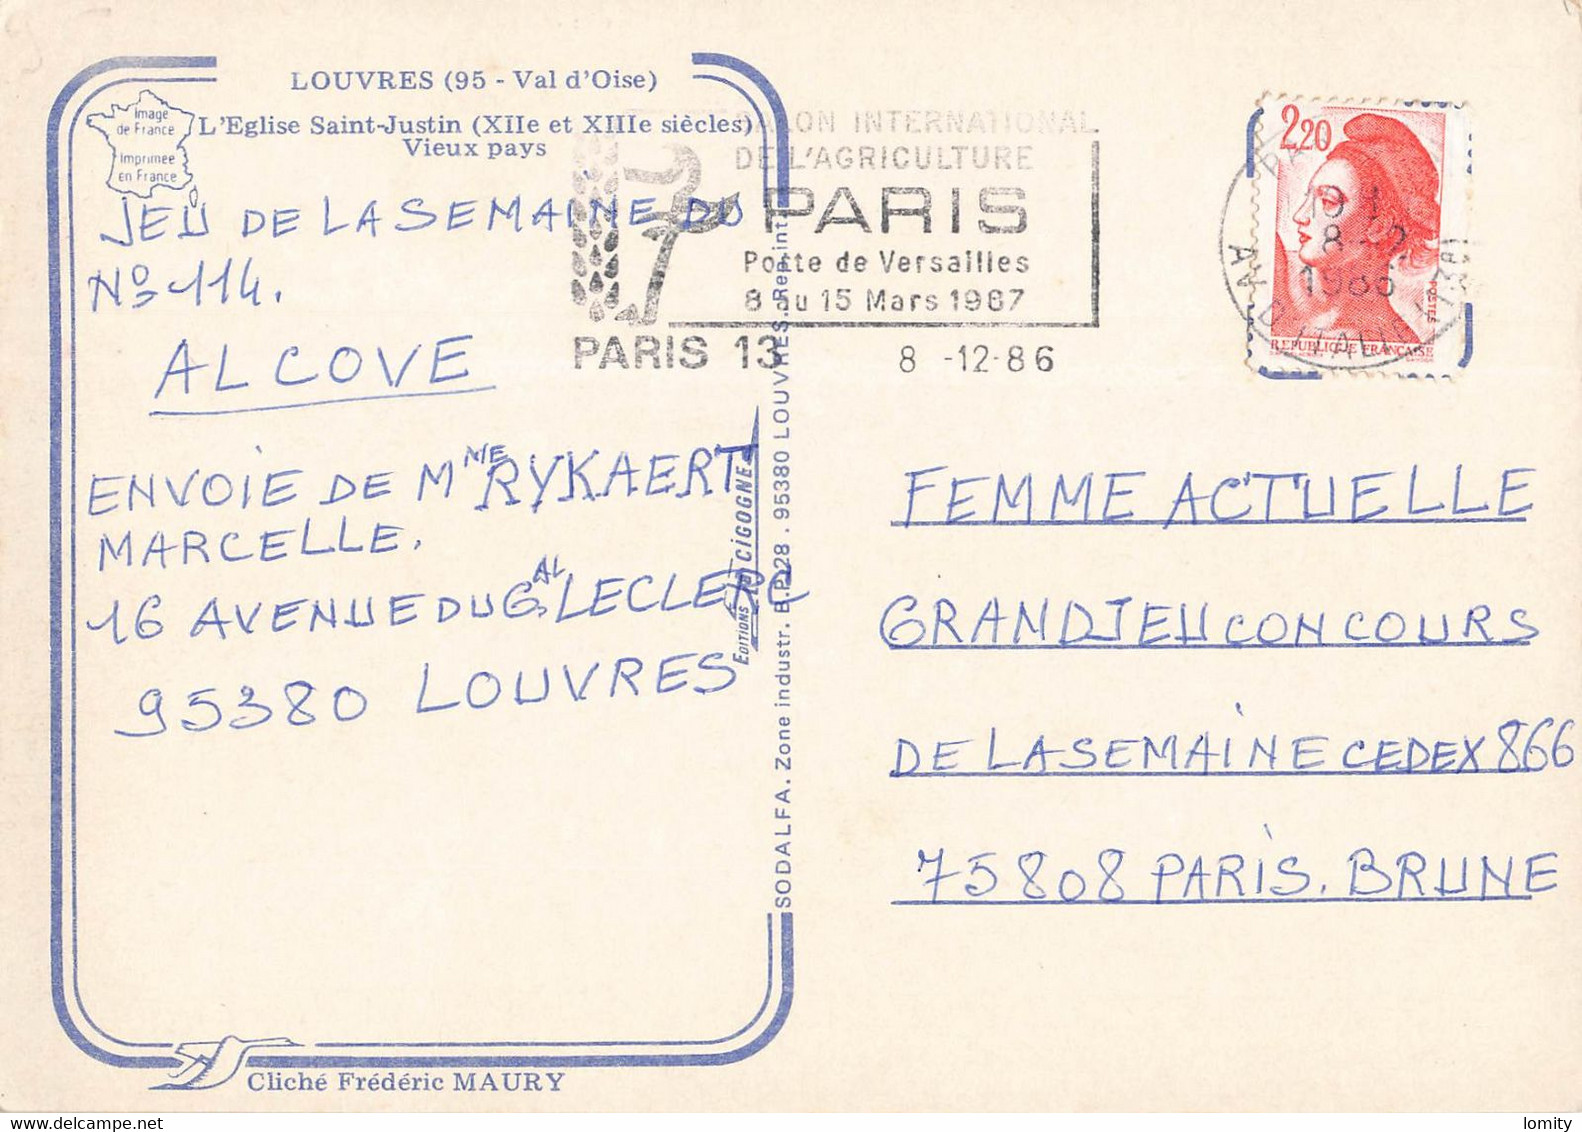 LOUVRES (95 - Val d'Oise)
Image
de France
Imprimée
en France
L'Eglise Saint-Justin (XIIe et XIIIe siècles)
Vieux pays
JEU DE LA SEMAINE DU
No 114.
ALCOVE
ENVOIE DE Mme RYKAERT
MARCELLE.
16 AVENUE DU GAL LECLERC
95380 LOUVRES
Cliché Frédéric MAURY
EDITIONS CIGOGNE
SODALFA. Zone industr. B.P. 28 . 95380 LOUVRES.
SALON INTERNATIONAL
DE L'AGRICULTURE
PARIS
Porte de Versailles
8 au 15 Mars 1987
PARIS 13
8 -12-86
2,20
POSTES
REPUBLIQUE FRANÇAISE
1986
AV. D'ITALIE (13E)
FEMME ACTUELLE
GRAND JEU CONCOURS
DE LA SEMAINE CEDEX 866
75808 PARIS. BRUNE
delcampe.net
lomity